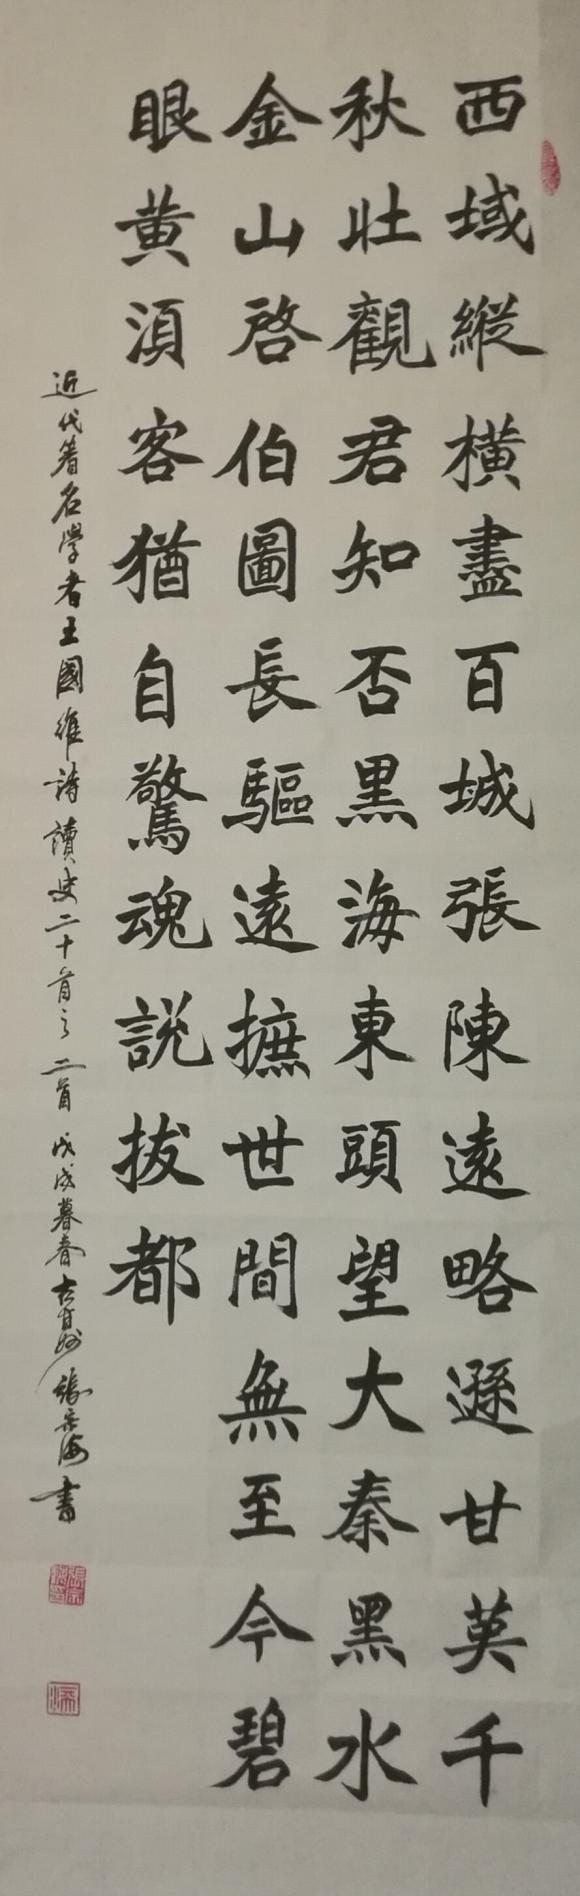 西域縱橫盡百城張陳遠略遜甘英千
秋壯觀君知否黑海東頭望大秦黑水
金山啓伯圖長驅遠摭世間無至今碧
眼黃須客猶自驚魂說拔都
近代著名學者王國維詩讀史二十首之二首 戊戌暮春古甘州張宗海書